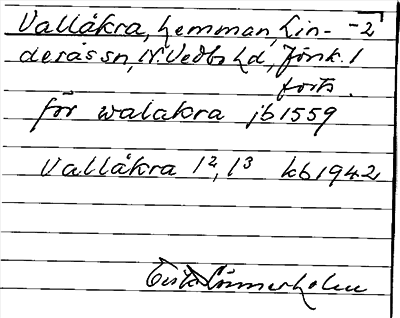 Vallåkra, hemman, Lin- -2
deràs sn, N. Vedbo hd, Jönk. l
forts.
för walakra jb 1559
Vallåkra 1², 1³ kb 1942
Gösta